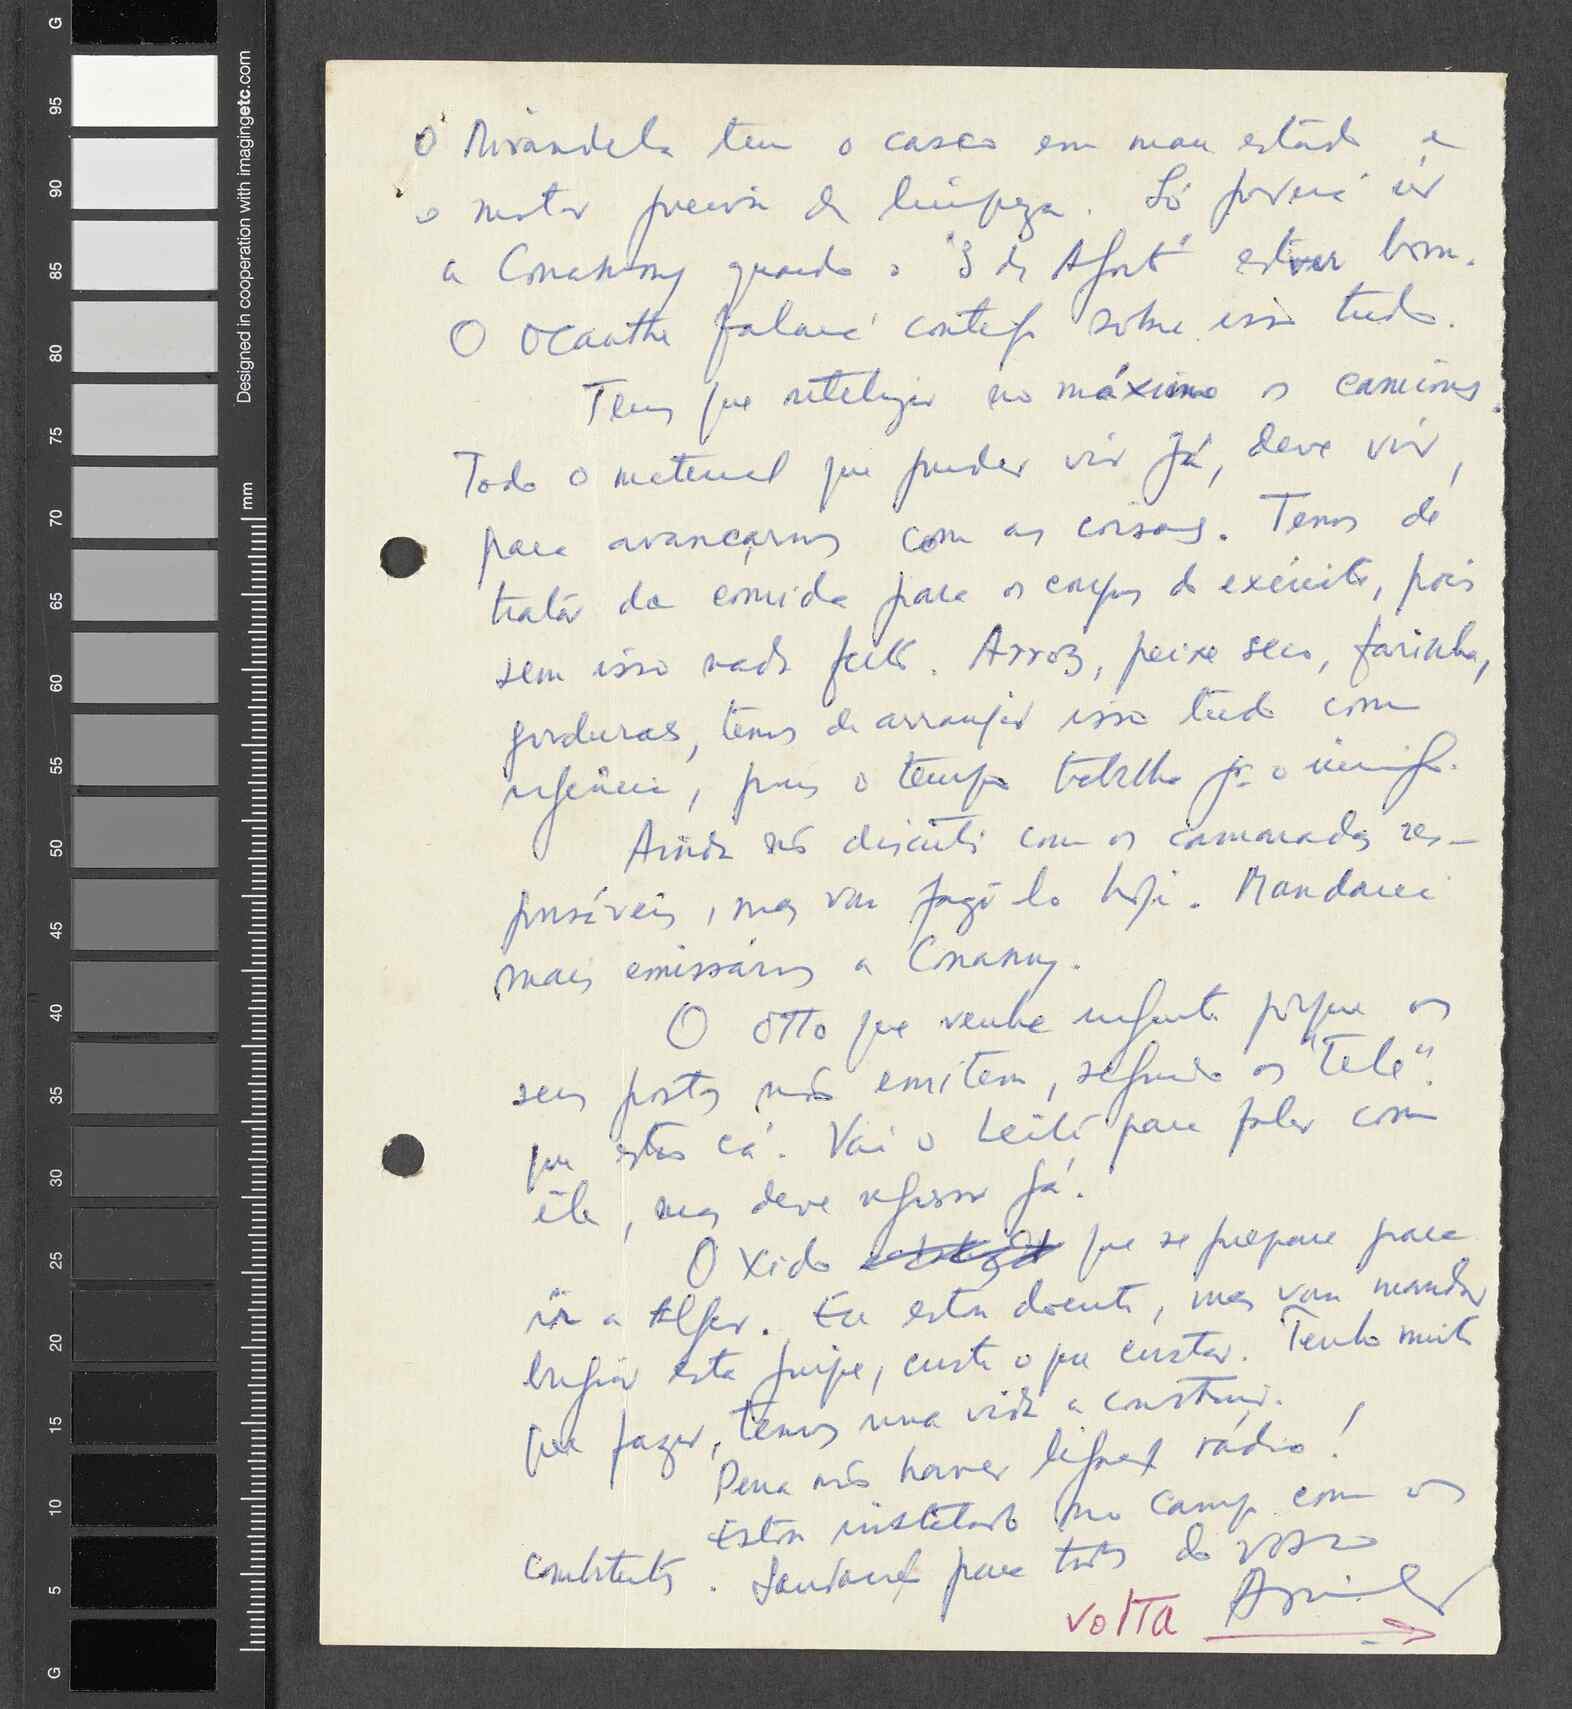 G
95
90
85
80
75
70
65
60
55
50
45
40
35
30
25
20
15
10
5
G
Designed in cooperation with imagingetc.com
mm
O Mirandela tem o casco em mau estado e
o motor precisa de limpeza. Só poderá ir
a Conakry quando o "3 de Agosto" estiver bom.
O Ocanthe falará contigo sobre isso tudo.
Tens que utilizar no máximo os camions.
Todo o material que puder vir já, deve vir,
para avançarmos com as coisas. Temos de
tratar da comida para os corpos do exército, pois
sem isso nada feito. Arroz, peixe seco, farinha,
gorduras, temos de arranjar isso tudo com
urgência, pois o tempo trabalha p. o inimigo.
Ainda não discuti com os camaradas res-
ponsáveis, mas vou fazê-lo hoje. Mandarei
mais emissários a Conakry.
O Otto que venha urgente porque os
seus postos não emitem, segundo os "Tele".
que estão cá. Vai o Leité para falar com
êle, mas deve regressar já.
O Xido que se prepare para
ir a Alger. Eu estou doente, mas vou mandar
bugiar esta gripe, custe o que custar. Tenho muito
que fazer, temos uma vida a construir.
Pena não haver ligação rádio!
Estou instalado no campo com os
combatentes. Saudações para todos do vosso
VOLTA